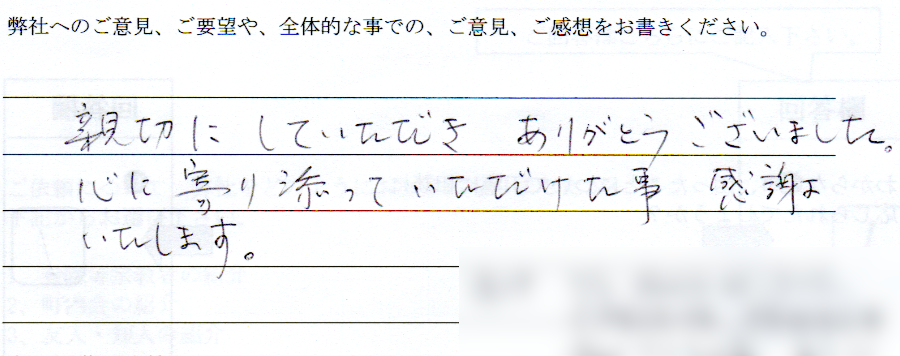 弊社へのご意見、ご要望や、全体的な事での、ご意見、ご感想をお書きください。
親切にしていただき ありがとうございました。
心に寄り添っていただけた事 感謝
いたします。